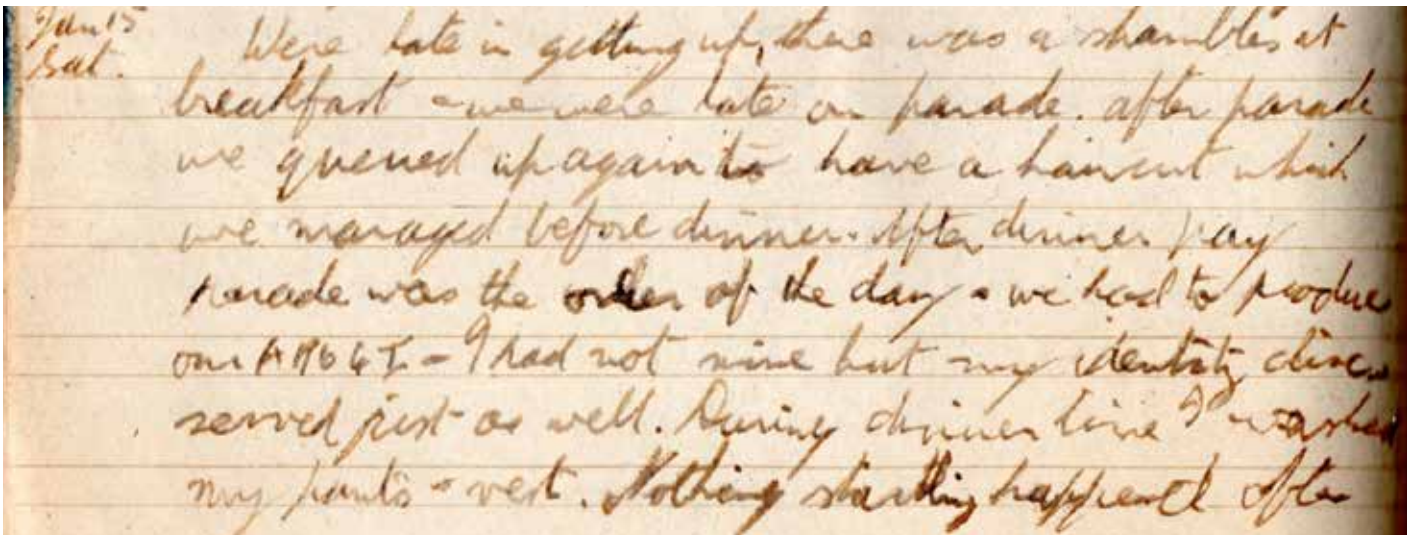 Jan 15
Sat.
Were late in getting up, there was a shambles at
breakfast & we were late on parade. After parade
we queued up again to have a haircut which
we managed before dinner. After dinner pay
parade was the order of the day & we had to produce
our - I had not mine but my identity discs
served just as well. During dinner time I washed
my pants & vest. Nothing startling happened after